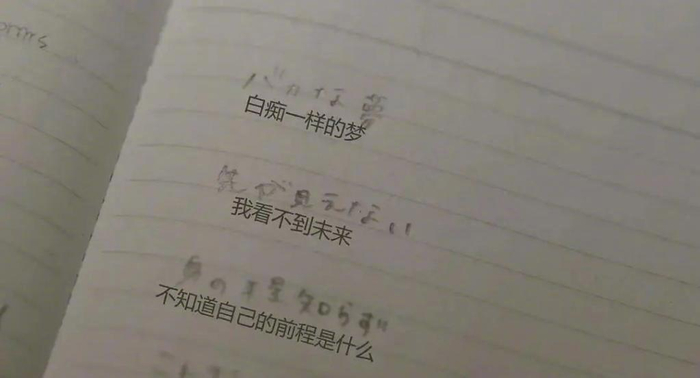 バカな夢
白痴一样的梦
先が見えない
我看不到未来
身の 知らず
不知道自己的前程是什么